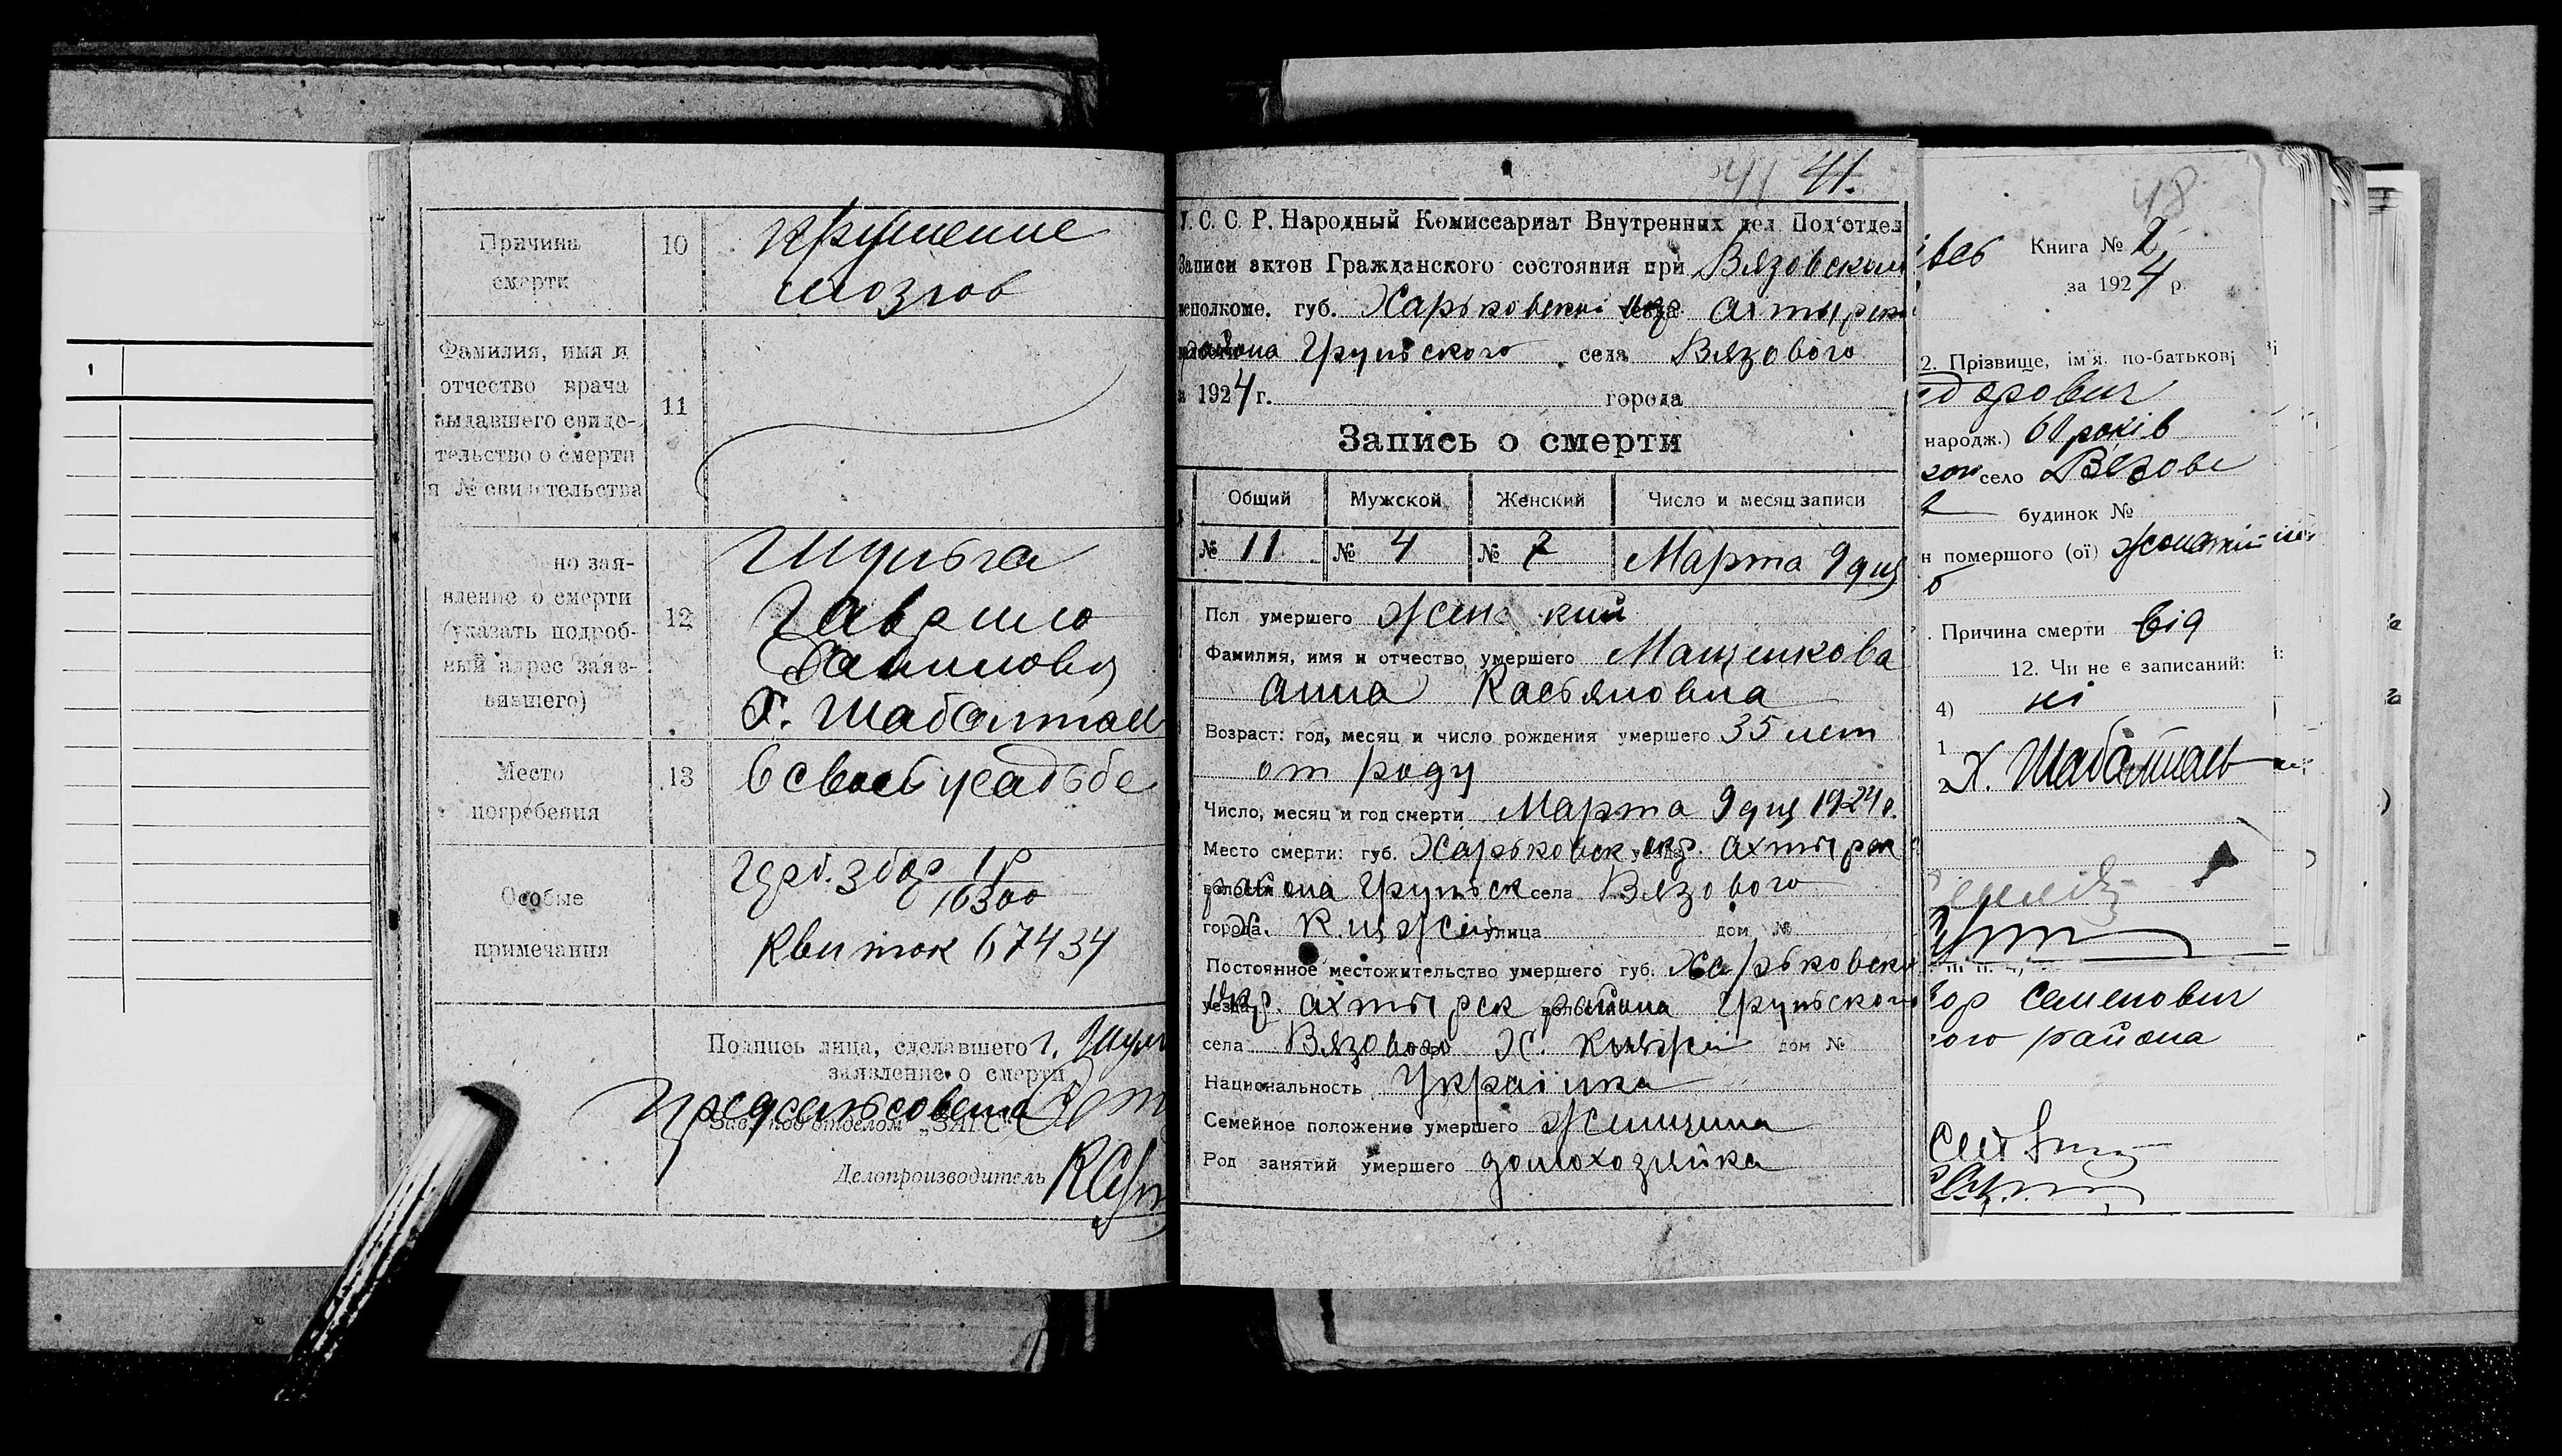 1
Причина
смерти
10
Крушение
мозгов
Фамилия, имя и
отчество врача
выдавшего свиде-
тельство о смерти
и № свидетельства
11
но зая-
вление о смерти
(указать подроб-
ный адрес заяв-
вившего)
12
Шульга
Гаврило
Данилови
Х. Шабалтаев
Место
погребения
13
в своей усадьбе
Особые
примечания
Герб. збор 1 р
16300
Квиток 67434
Подпись лица, сделавшего Г. Шул
заявление о смерти
Предсельсовета
Зав. подотделом „ЗАГС“
Делопроизводитель
41 41.
У. С. С. Р. Народный Комиссариат Внутренних дел Под'отдел
Записи актов Гражданского состояния при Вязовском
исполкоме. губ. Харьковскоі окр. Ахтырско
района Грунского села Вязового
в 1924 г. города
Запись о смерти
Общий Мужской Женский Число и месяц записи
№ 11 № 4 № 7 Марта 9 дня
Пол умершего Женский
Фамилия, имя и отчество умершего Мащенкова
Анна Касьяновна
Возраст: год, месяц и число рождения умершего 35 лет
от роду
Число, месяц и год смерти Марта 9 дня 1924 г.
Место смерти: губ. Харьковск окр. Ахтырск
района Груньск села Вязового
города. х. улица дом №
Постоянное местожительство умершего губ. Харьковско
уезда окр. Ахтырск района Груньского
села Вязового Х. дом №
Национальность Украінка
Семейное положение умершего Женщина
Род занятий умершего домохозяйка
48
Книга № 2
за 1924 р.
2. Прізвище, ім'я по-батькові
дорович
народж.) 60 років
село Вязове
будинок №
н помершого (ої)
. Причина смерти від
12. Чи не є записаний:
4) ні
1
2 Х. Шабалтаев
ор Семенович
ого района